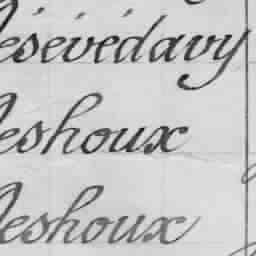 Desévédavy
Deshoux
Deshoux